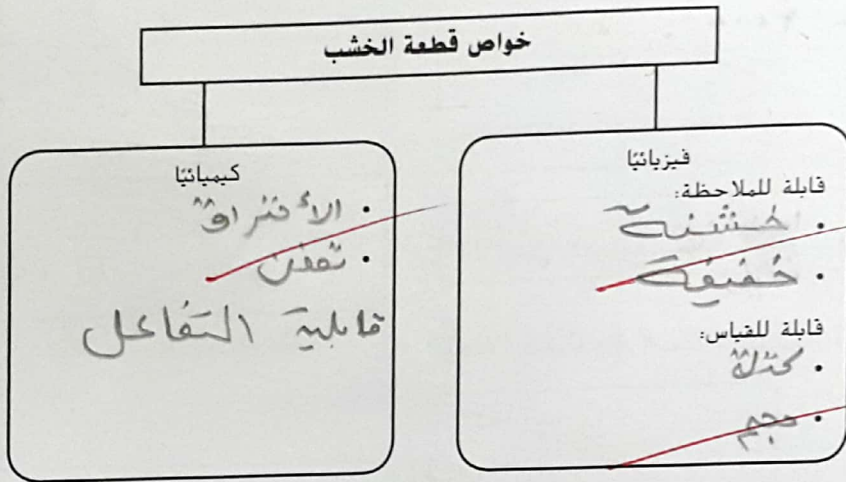 خواص قطعة الخشب
فيزيائيًا
قابلة للملاحظة:
• خشنة
• خفيفة
قابلة للقياس:
• كتلة
• حجم
كيميائيًا
• الأفتراق
• تعفن
قابلية التفاعل